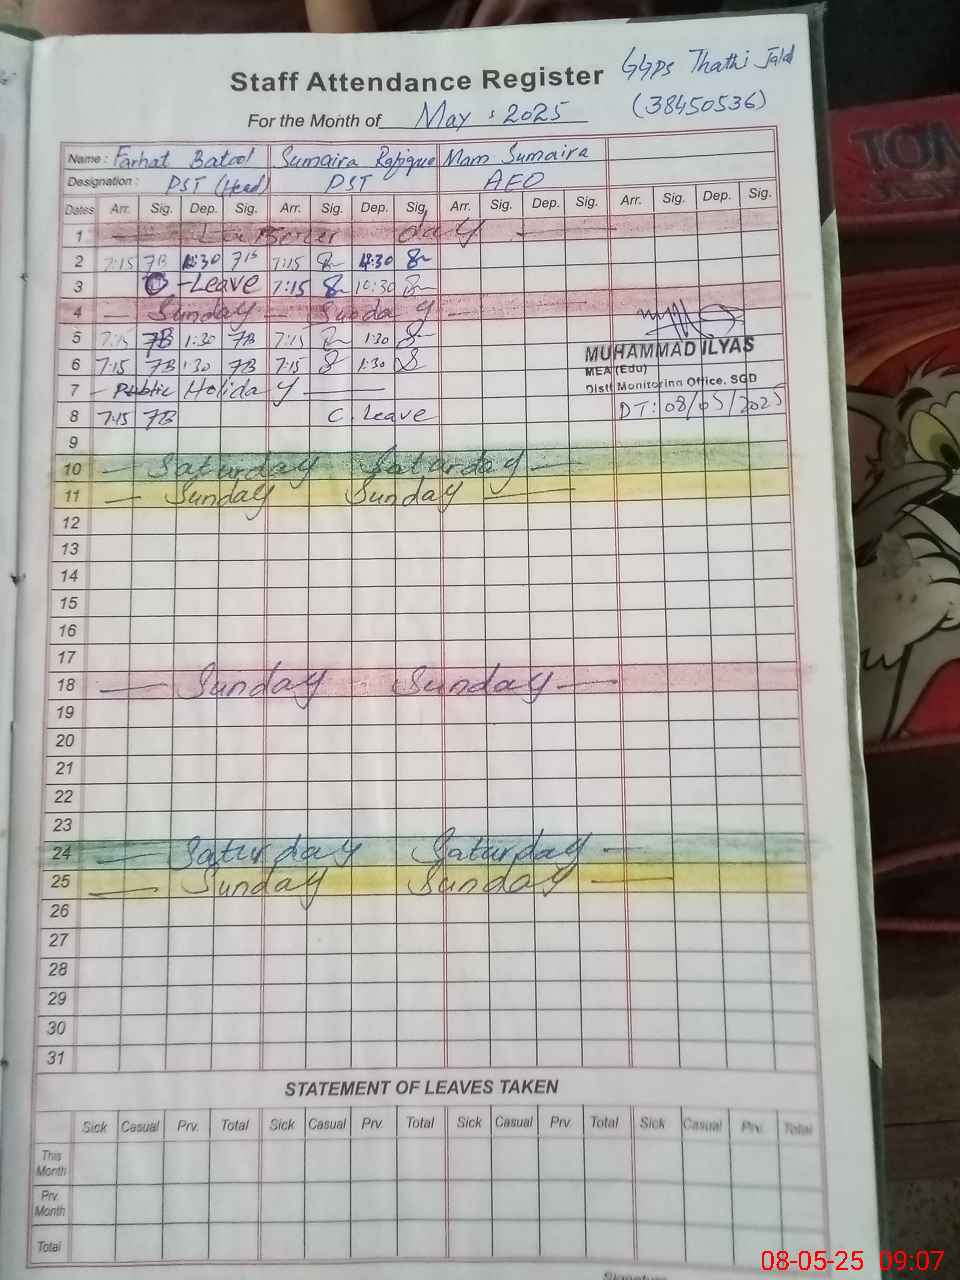 GGPS Thathi Jalal
Staff Attendance Register
(38450536)
For the Month of May : 2025
Name : Farhat Batool Sumaira Rafique Mam Sumaira
Designation : PST (Head) PST AEO
Dates Arr. Sig. Dep. Sig. Arr. Sig. Dep. Sig. Arr. Sig. Dep. Sig. Arr. Sig. Dep. Sig.
1 — Labour day —
2 7:15 FB 7:15
3 -Leave 7:15 10:30
4 — Sunday — Sunday —
5 7:15 FB 1:30 FB 7:15 1:30
6 7:15 FB 1:30 FB 7:15 1:30
MUHAMMAD ILYAS
MEA (Edu)
Distt Monitoring Office, SGD
7 - Public Holiday —
DT: 08/05/2025
8 7:15 FB C. Leave
9
10 — Saturday Saturday —
11 — Sunday Sunday —
12
13
14
15
16
17
18 — Sunday Sunday —
19
20
21
22
23
24 — Saturday Saturday —
25 — Sunday Sunday —
26
27
28
29
30
31
STATEMENT OF LEAVES TAKEN
Sick Casual Prv. Total Sick Casual Prv. Total Sick Casual Prv. Total Sick Casual Prv. Total
This
Month
Prv.
Month
Total
Signature
08-05-25 09:07